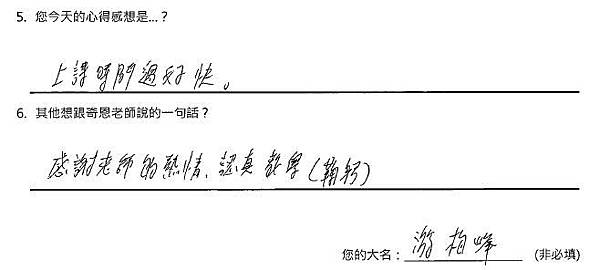 5. 您今天的心得感想是...？
上課時間過好快。
6. 其他想跟寄恩老師說的一句話？
感謝老師的熱情、認真教學(鞠躬)
您的大名：游柏峰 (非必填)